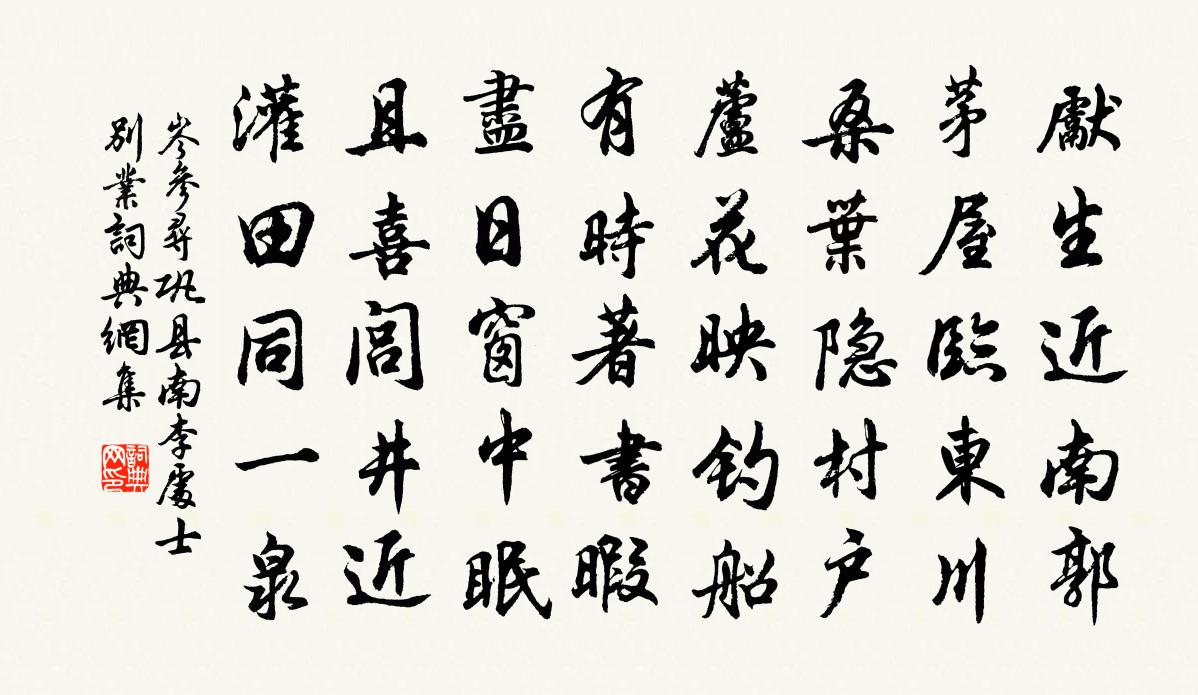 獻生近南郭
茅屋臨東川
桑葉隐村户
蘆花映釣船
有時著書暇
盡日窗中眠
且喜閭井近
灌田同一泉
岑參尋巩县南李處士
別業詞典網集
詞典
网印